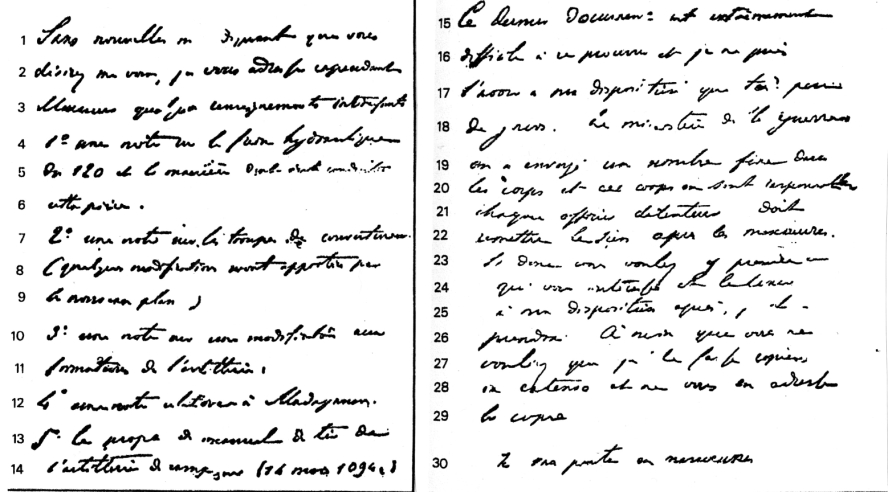 1 Sans nouvelles m'indiquant que vous
2 désirez me voir, je vous adresse cependant
3 Monsieur quelques renseignements intéressants
4 1º une note sur le frein hydraulique
5 du 120 et la manière dont s'est conduite
6 cette pièce.
7 2º une note sur les troupes de couverture.
8 (quelques modifications seront apportées par
9 le nouveau plan)
10 3º une note sur une modification aux
11 formations de l'artillerie:
12 4º une note relative à Madagascar.
13 5º le projet de manuel de tir de
14 l'artillerie de campagne (14 mars 1894.)
15 Ce dernier document est extrêmement
16 difficile à se procurer et je ne puis
17 l'avoir à ma disposition que très peu
18 de jours. Le ministère de la guerre en
19 a envoyé un nombre fixe dans
20 les corps et ces corps en sont responsables
21 chaque officier détenteur doit
22 remettre le sien après les manœuvres.
23 Si donc vous voulez y prendre ce
24 qui vous intéresse et le tenir
25 à ma disposition après, je le
26 prendrai. À moins que vous ne
27 vouliez que je le fasse copier
28 in extenso et ne vous en adresse
29 la copie
30 Je vais partir en manœuvres